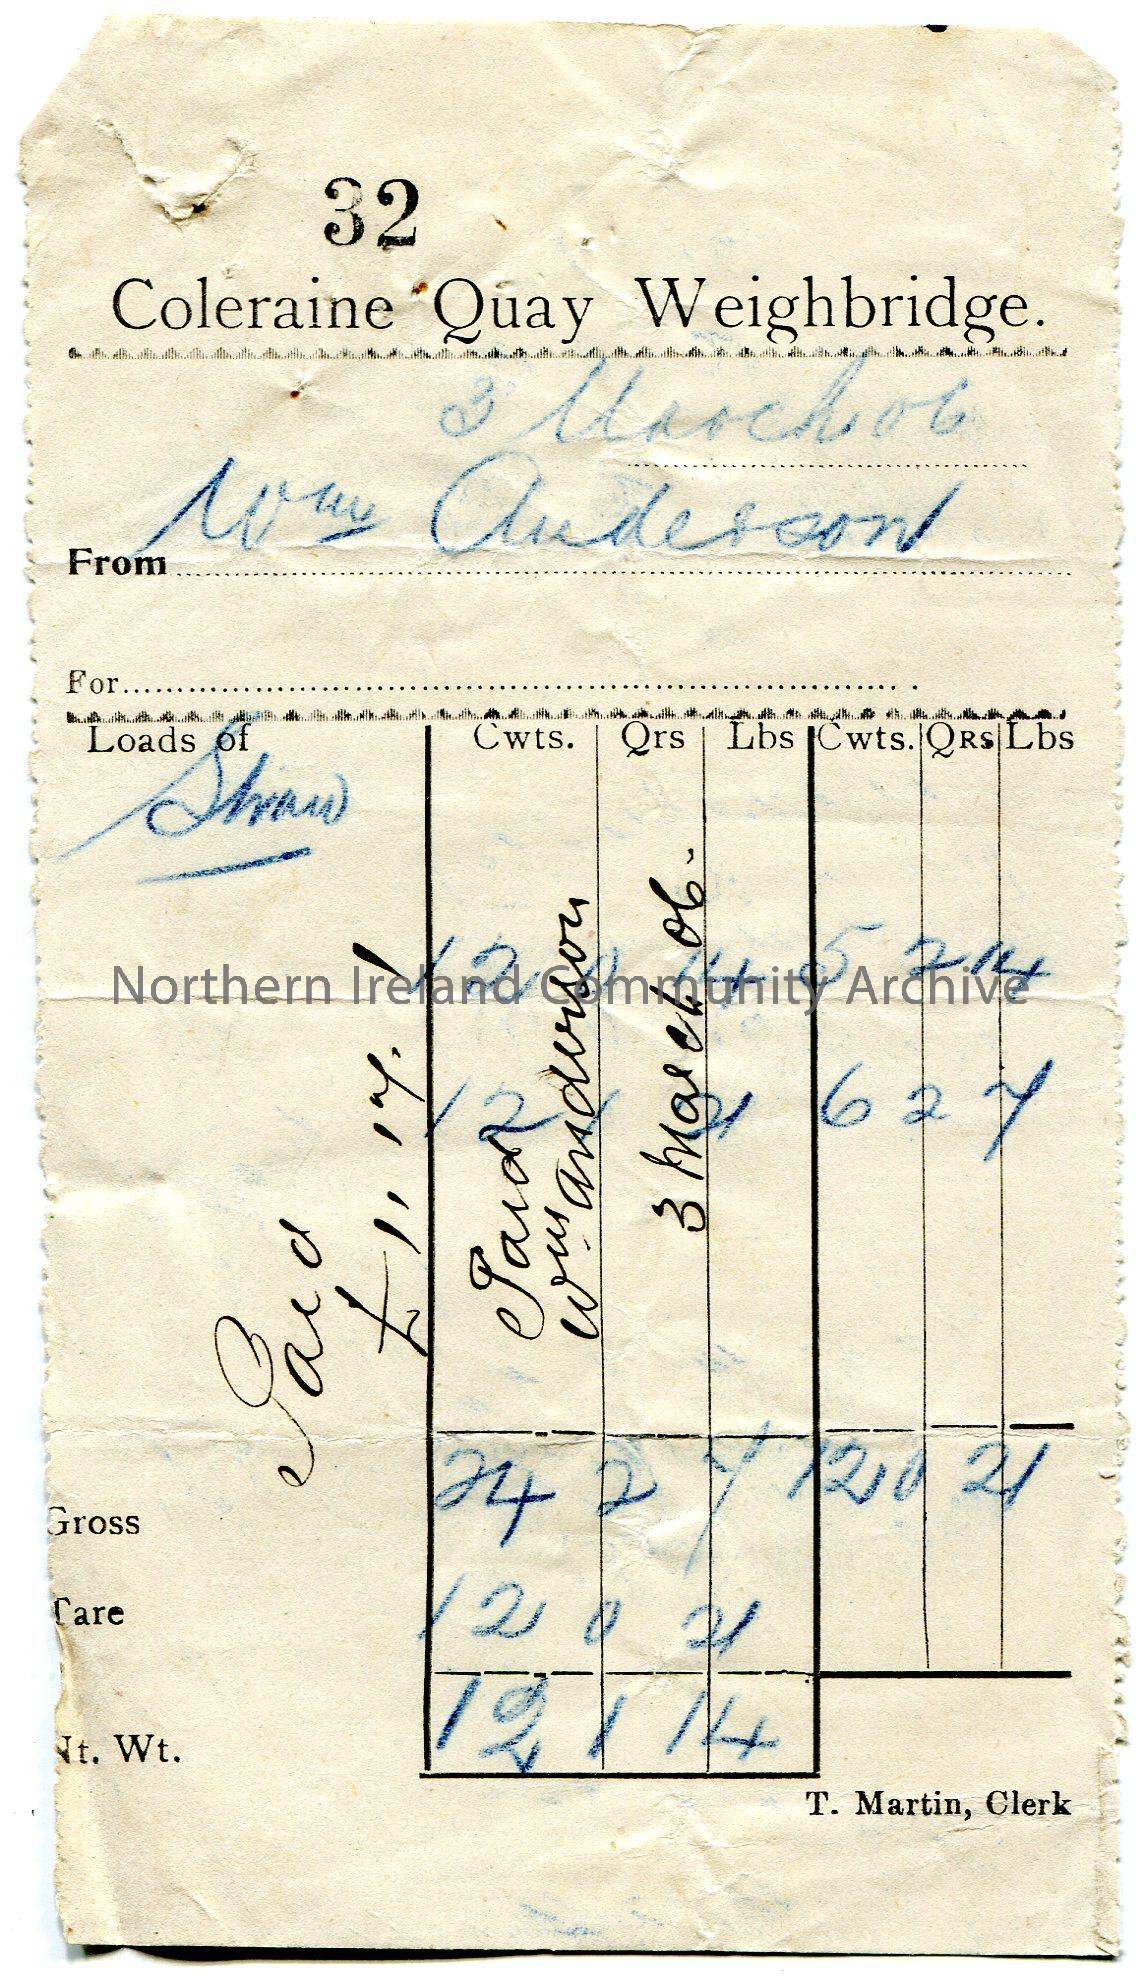 32
Coleraine Quay Weighbridge.
3 March 06
Wm Anderson
From
For
Loads of Cwts. Qrs Lbs Cwts. QRS Lbs
Straw
12 0 14 5 2 14
12 1 21 6 2 7
Paid
£1,,17.1
Paid
Wm Anderson
3 March 06.
Northern Ireland Community Archive
Gross 24 2 7 12 0 21
Tare 12 0 21
Nt. Wt. 12 1 14
T. Martin, Clerk